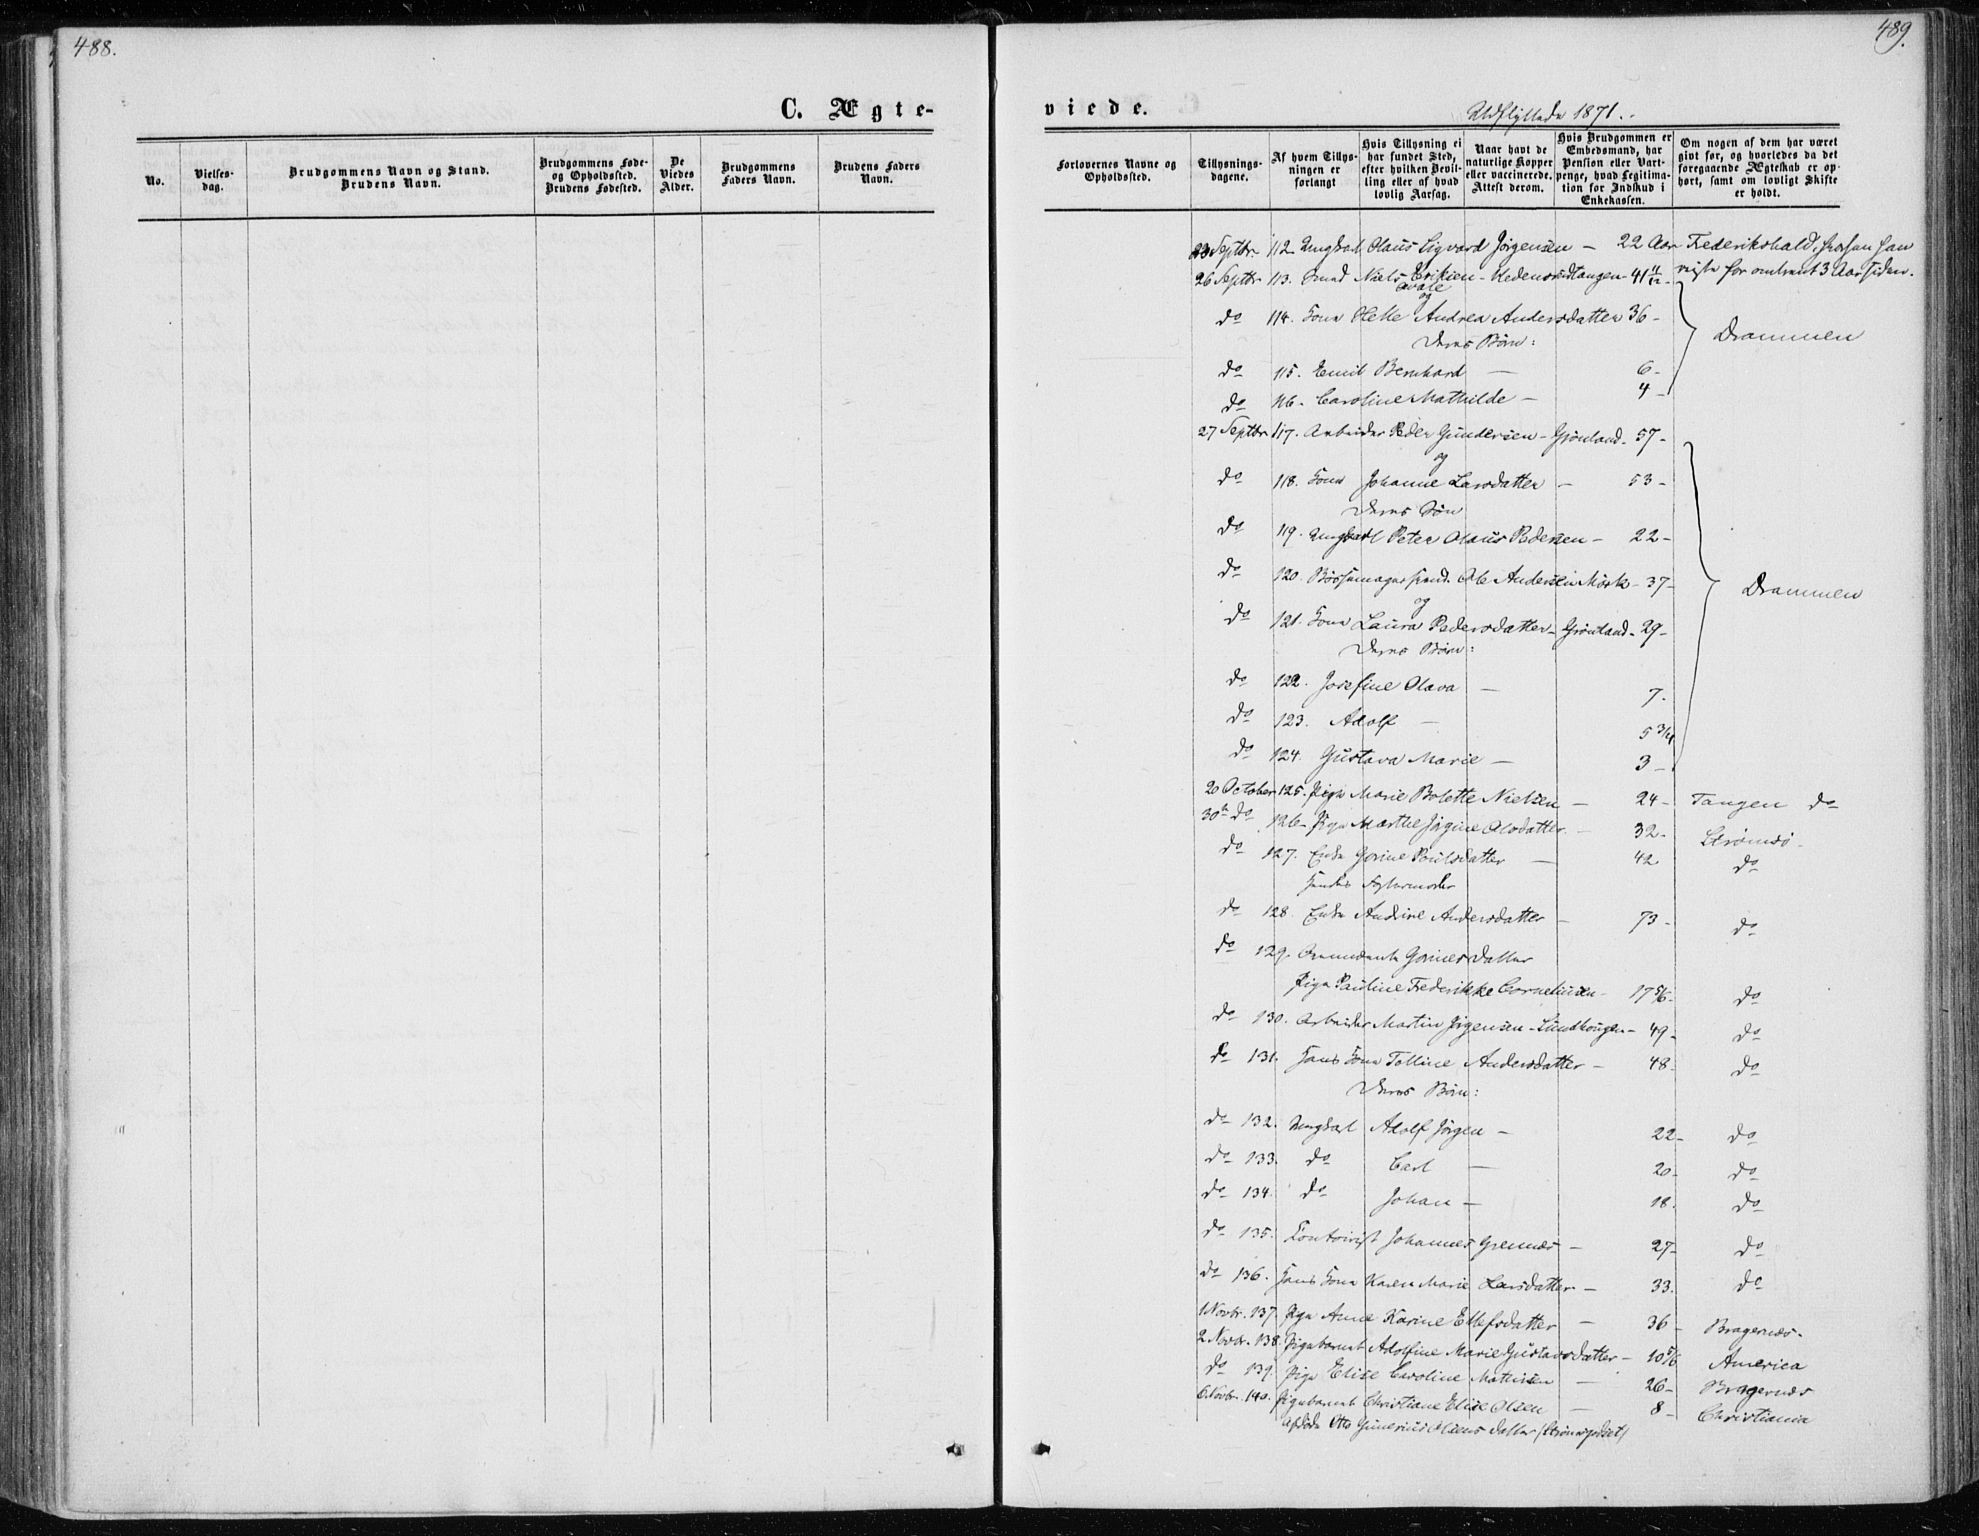 488.
C. Ægte-
No.
Vielses-
dag.
Brudgommens Navn og Stand.
Brudens Navn.
Brudgommens Føde-
og Opholdssted.
Brudens Fødested.
De
Viedes
Alder.
Brudgommens
Faders Navn.
Brudens Faders
Navn.
489.
viede.
Udflyttede 1871.
Forlovernes Navne og
Opholdssted.
Tillysnings-
dagene.
Af hvem Tillys-
ningen er
forlangt
Hvis Tillysning ei
har fundet Sted,
efter hvilken Bevil-
ling eller af hvad
lovlig Aarsag.
Naar havt de
naturlige Kopper
eller vaccinerede.
Attest derom.
Hvis Brudgommen er
Embedsmand, har
Pension eller Vart-
penge, hvad Legitima-
tion for Indskud i
Enkekassen.
Om nogen af dem har været
givt før, og hvorledes da det
foregaaende Ægteskab er op-
hørt, samt om lovligt Skifte
er holdt.
23 Septbr 112 Ungkarl Olaus Sigvard Jørgensen – 22 Aar Frederikshald, han
reiste for omtrent 3 Aar siden.
26 Septbr 113. Niels Eriksen – 41 11/12 –
og
do 114. Kona Helle Andrea Andersdatter 36 –
Deres Børn:
Drammen
do 115. Emil Bernhard – 6 –
do 116. Caroline Mathilde – 4 –
27 Septbr 117. Arbeider Peder Gundersen – Grønland – 57 –
og
do 118. Kona Johanne Larsdatter – 53 –
Deres Søn
do 119. Ungkarl Peter Olaus Pedersen – 22 –
do 120. Bøssemagersvend Ole Andersen Mørk – 37 –
Drammen
og
do 121. Kona Laura Pedersdatter – Grønland – 29 –
Deres Børn:
do 122. Josefine Olava – 7 –
do 123. Adolf – 5 3/4
do 124. Gustava Marie – 3 –
20 October 125. Pige Marie Bolette Nielsen – 24 – Tangen do
30te do 126 – Pige Marthe Jørgine Olsdatter – 32 – Strømsø
do 127. Enke Gorine Poulsdatter – 42 do
do 128. Enke Andrine Andersdatter – 73 – do
do 129. Gorines Datter
Pige Pauline Frederikke Corneliusen – 17 5/6 – do
do 130. Arbeider Martin Jørgensen – Lundhougen – 49 – do
do 131. Hans Kone Talline Andersdatter – 48 – do
Deres Børn:
do 132. Ungkarl Adolf Jørgen – 22 – do
do 133. do Carl – 20 – do
do 134. do Johan – 18. do
do 135. Contorist Johannes Grennes – 27 – do
do 136. Hans Kone Karen Marie Larsdatter – 33. do
1 Novbr. 137. Pige Anne Karine Ellefsdatter – 36 – Bragernæs.
2 Novbr. 138. Pigebarnet Adolfine Marie Gustavsdatter – 10 5/6 America
do 139. Pige Elise Caroline Mathisen – 26 – Bragernæs
6 Novbr. 140. Pigebarnet Christiane Elise Olsen – 8 – Christiania
Afdøde Otto Gunerius Olsens Datter (Strømsgodset)